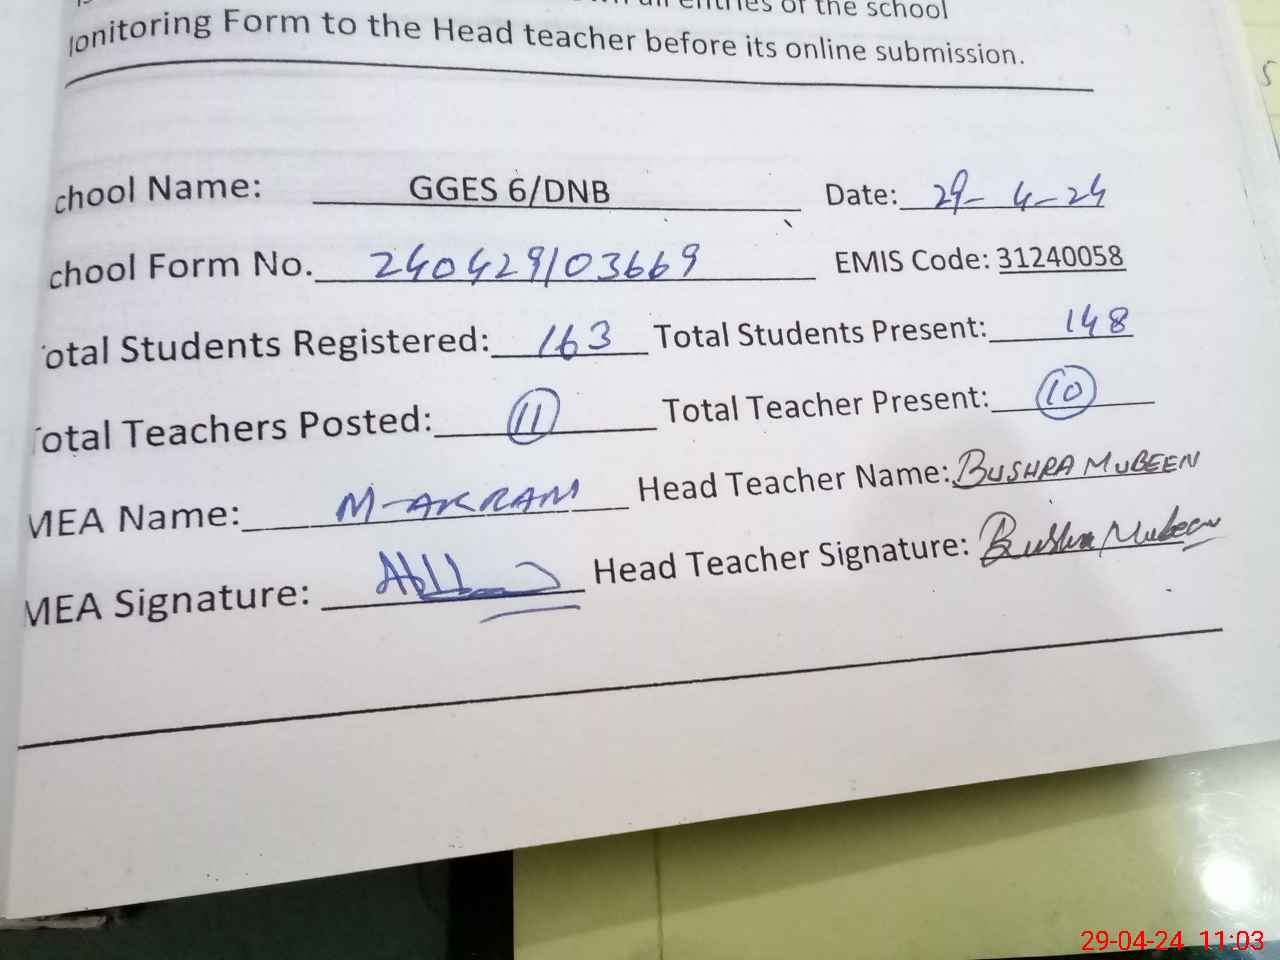 entries of the school
onitoring Form to the Head teacher before its online submission.
chool Name: GGES 6/DNB Date: 29-4-24
chool Form No. 240429103669 EMIS Code: 31240058
otal Students Registered: 163 Total Students Present: 148
otal Teachers Posted: 11 Total Teacher Present: 10
MEA Name: M-AKRAM Head Teacher Name: BUSHRA MUBEEN
MEA Signature: Head Teacher Signature: Bushra Mubeen
29-04-24 11:03